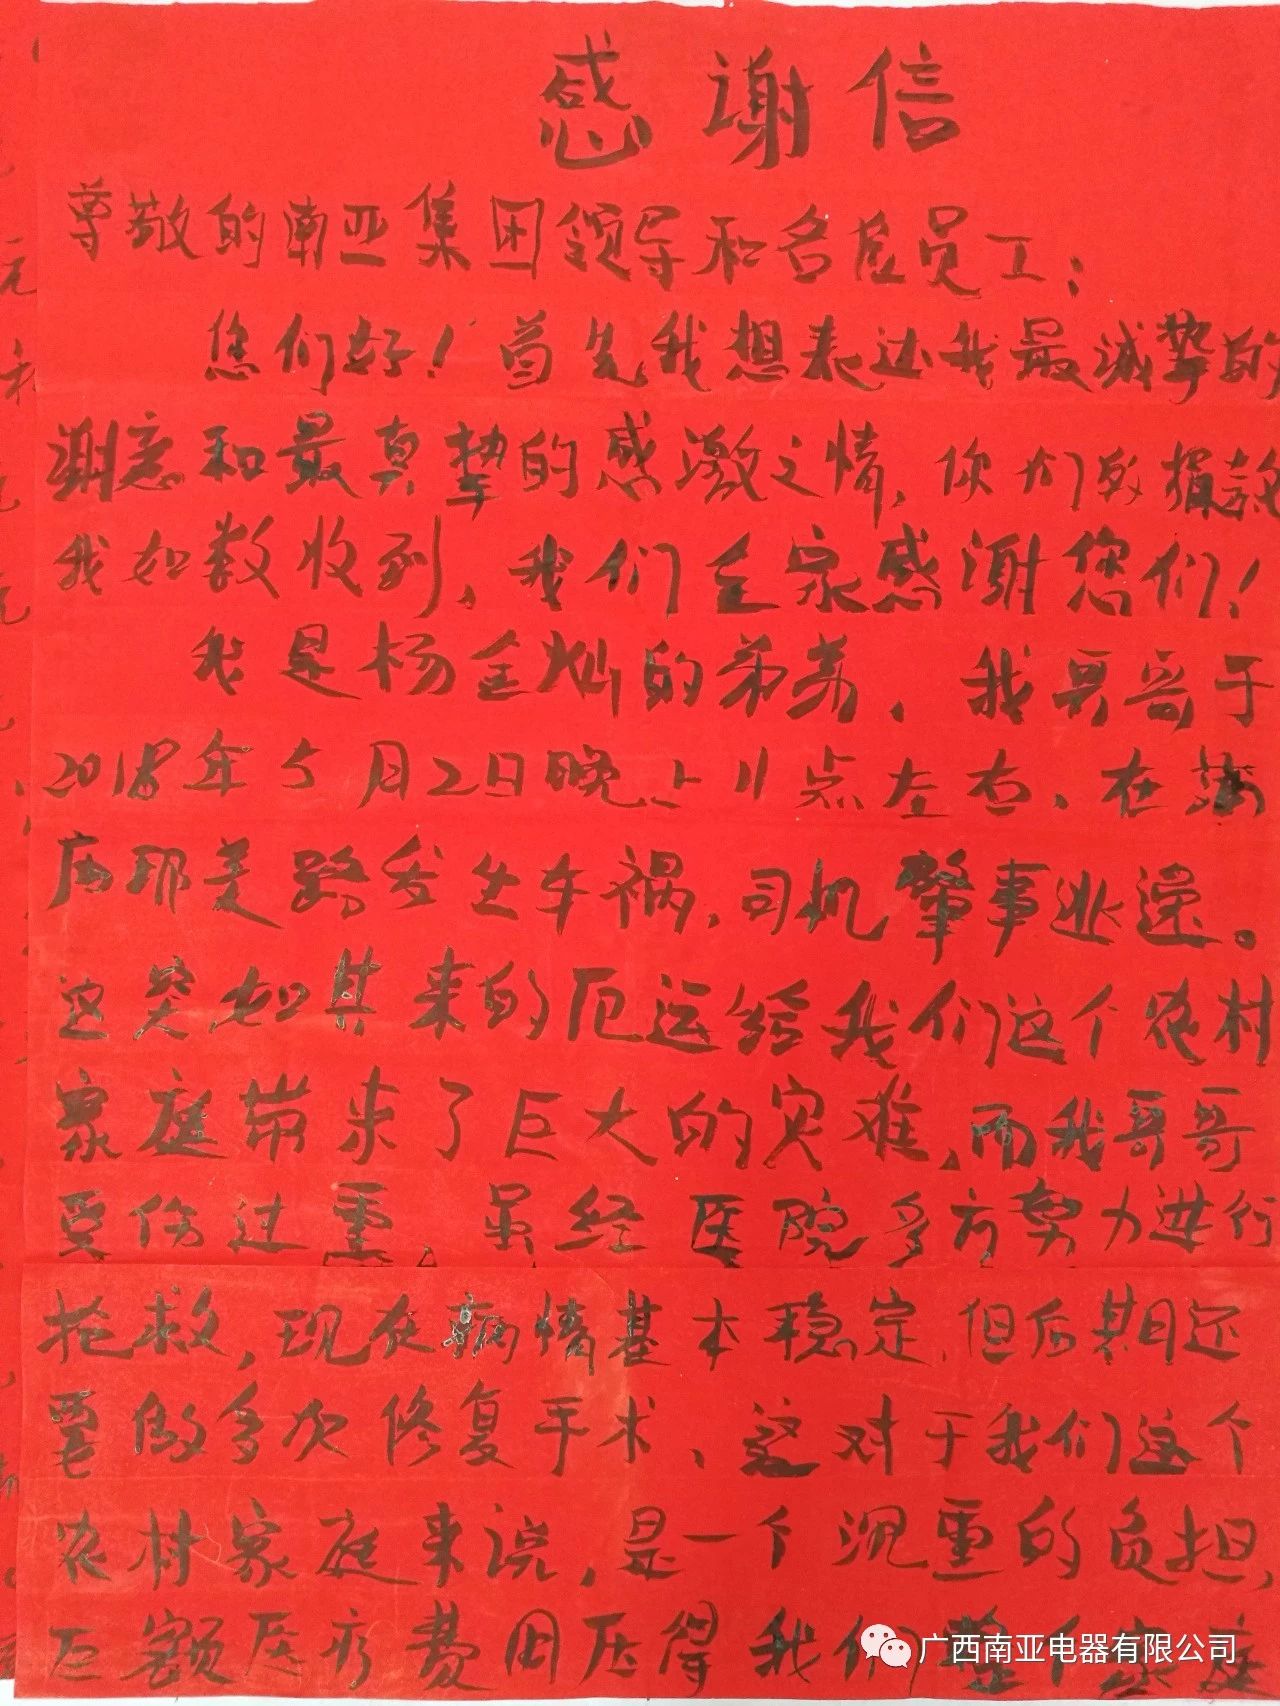 感谢信
尊敬的南亚集团领导和各位员工：
您们好！首先我想表达我最诚挚的
谢意和最真挚的感激之情，你们的捐款
我如数收到，我们全家感谢您们！
我是杨金灿的弟弟，我哥哥于
2018年5月2日晚上11点左右，在
那美路发生车祸，司机肇事逃逸。
这突如其来的厄运给我们这个农村
家庭带来了巨大的灾难，而我哥哥
受伤过重，虽经医院多方努力进行
抢救，现在病情基本稳定，但后期还
要做多次修复手术，这对于我们这个
农村家庭来说，是一个沉重的负担，
巨额医疗费用压得我们整个家庭
广西南亚电器有限公司